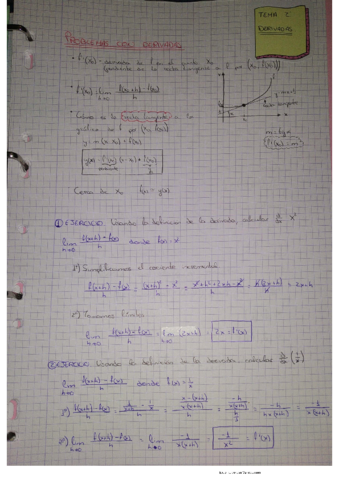 TEMA 2
DERIVADAS
PROBLEMAS CON DERIVADAS
f'(x₀) = pendiente de la recta tangente a f por (x₀, f(x₀))
f'(x₀) = lim h→0 f(x₀+h) - f(x₀) / h
recta tangente
Cálculo de la recta tangente a la
gráfica de f por (x₀, f(x₀))
m = tg α
f'(x₀) = m
y = m(x-x₀) + f(x₀)
y(x) = f'(x₀) (x-x₀) + f(x₀)
Cerca de x₀ f(x) ≈ y(x)
① EJERCICIO Usando la definición de la derivada, calcular d/dx x²
lim h→0 f(x+h) - f(x) / h donde f(x) = x²
1º) Simplificamos el cociente incremental
f(x+h) - f(x) / h = (x+h)² - x² / h = x² + h² + 2xh - x² / h = h(2x+h) / h = 2x+h
2º) Tomamos límites
lim h→0 f(x+h) - f(x) / h = lim h→0 (2x+h) = 2x = f'(x)
② EJERCICIO Usando la definición de la derivada, calcular d/dx (1/x)
lim h→0 f(x+h) - f(x) / h donde f(x) = 1/x
1º) f(x+h) - f(x) / h = 1/(x+h) - 1/x / h = x-(x+h) / x(x+h) / h = -h / x(x+h) / h = -h / h·x(x+h) = -1 / x(x+h)
2º) lim h→0 f(x+h) - f(x) / h = lim h→0 -1 / x(x+h) = -1/x² = f'(x)